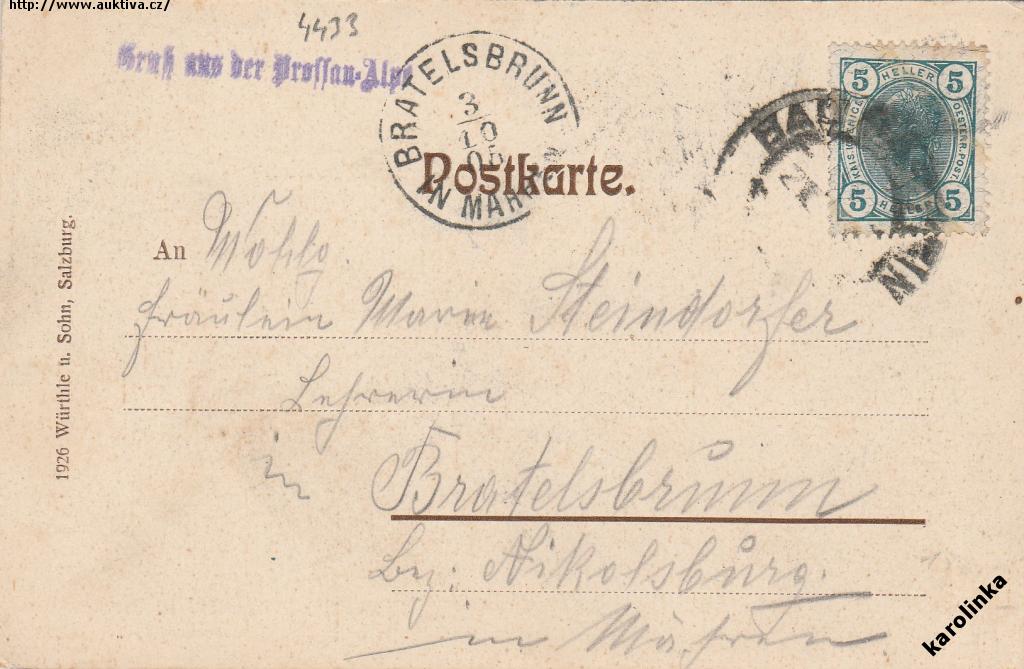 http://www.auktiva.cz/
4433
Gruß aus der Prossau-Alpe
BRATELSBRUNN
3/10
05
IN MÄHREN
Postkarte.
5 HELLER 5
KAIS. KÖNIGL. OESTERR. POST.
5 HELLER 5
An Wohlg.
Fräulein Marie Steindorfer
Lehrerin
in Bratelsbrunn
Bez: Nikolsburg.
in Mähren
1926 Würthle u. Sohn, Salzburg.
karolinka